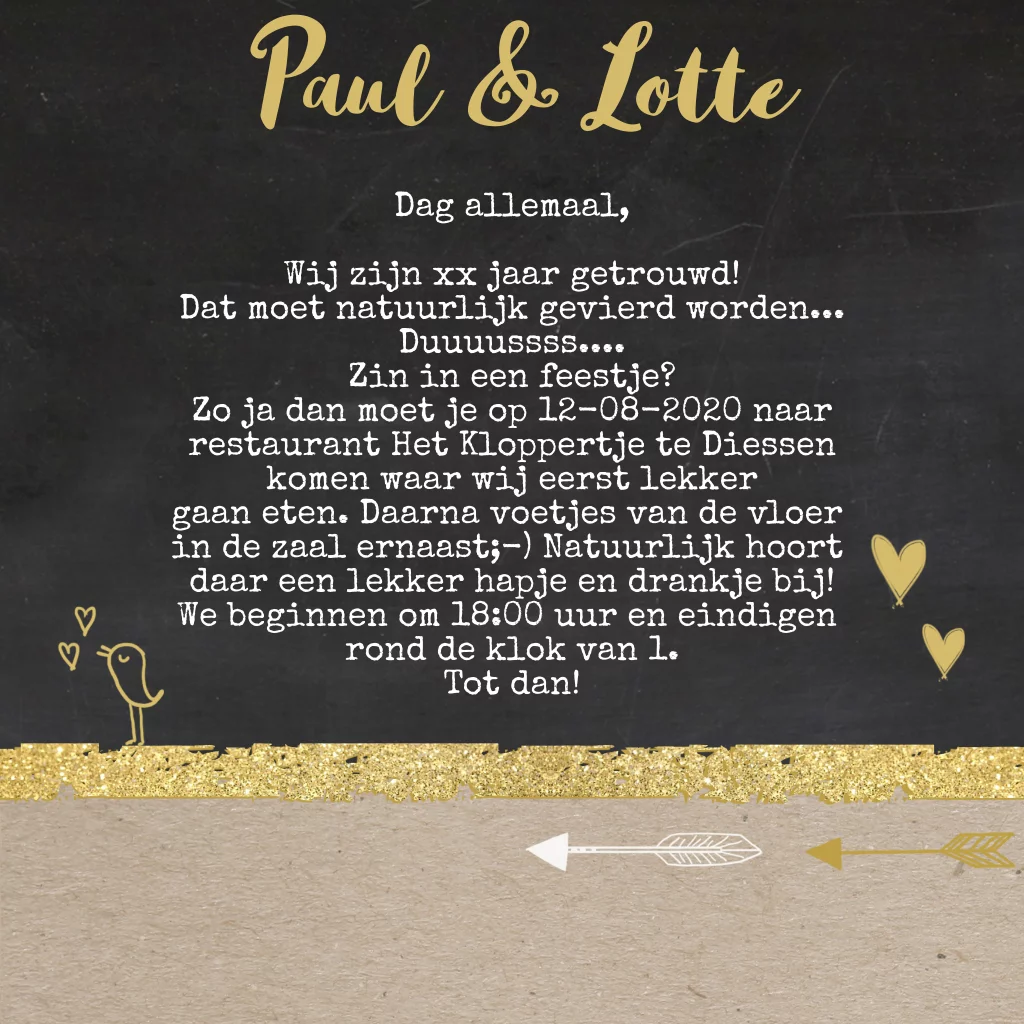 Paul & Lotte
Dag allemaal,
Wij zijn xx jaar getrouwd!
Dat moet natuurlijk gevierd worden...
Duuuussss....
Zin in een feestje?
Zo ja dan moet je op 12-08-2020 naar
restaurant Het Kloppertje te Diessen
komen waar wij eerst lekker
gaan eten. Daarna voetjes van de vloer
in de zaal ernaast;-) Natuurlijk hoort
daar een lekker hapje en drankje bij!
We beginnen om 18:00 uur en eindigen
rond de klok van 1.
Tot dan!